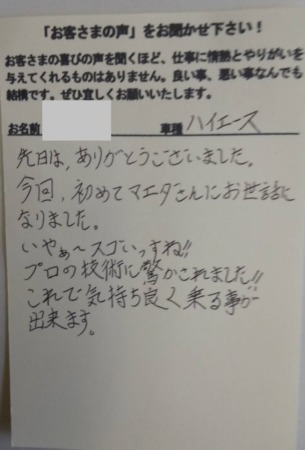 「お客さまの声」をお聞かせ下さい!
お客さまの喜びの声を聞くほど、仕事に情熱とやりがいを
与えてくれるものはありません。良い事、悪い事なんでも
結構です。ぜひ宜しくお願いいたします。
お名前 車種 ハイエース
先日は、ありがとうございました。
今回、初めてマエダさんにお世話に
なりました。
いやぁ〜スゴいっすね!!
プロの技術に驚かされました!!
これで気持ち良く乗る事が
出来ます。